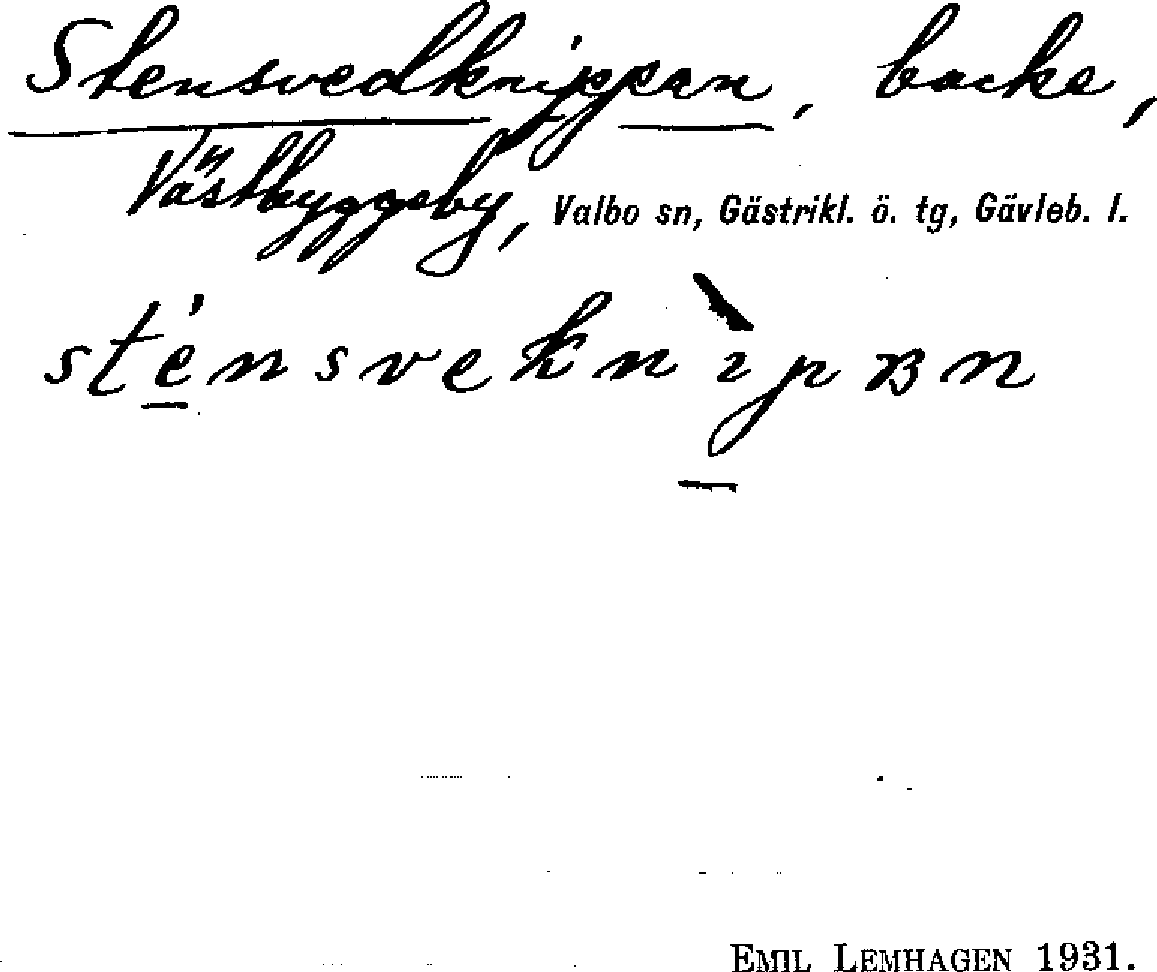 Stensvedknippan, backe,
Västbyggeby, Valbo sn, Gästrikl. ö. tg, Gävleb. l.
sténsveknìpʙn
EMIL LEMHAGEN 1931.